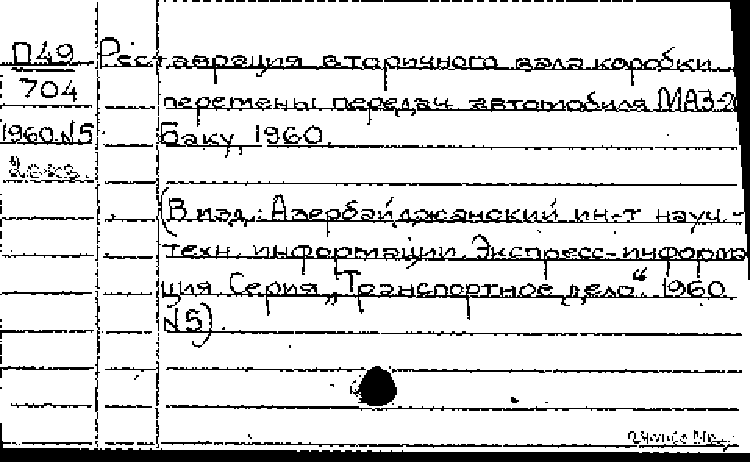 П49
704
1960 №5
2 экз.
Реставрация вторичного вала коробки
перемены передач автомобиля МАЗ-20
Баку, 1960.
(В надз.: Азербайджанский ин-т науч.-
техн. информации. Экспресс-информа
ция Серия „Транспортное дело“. 1960
№5).